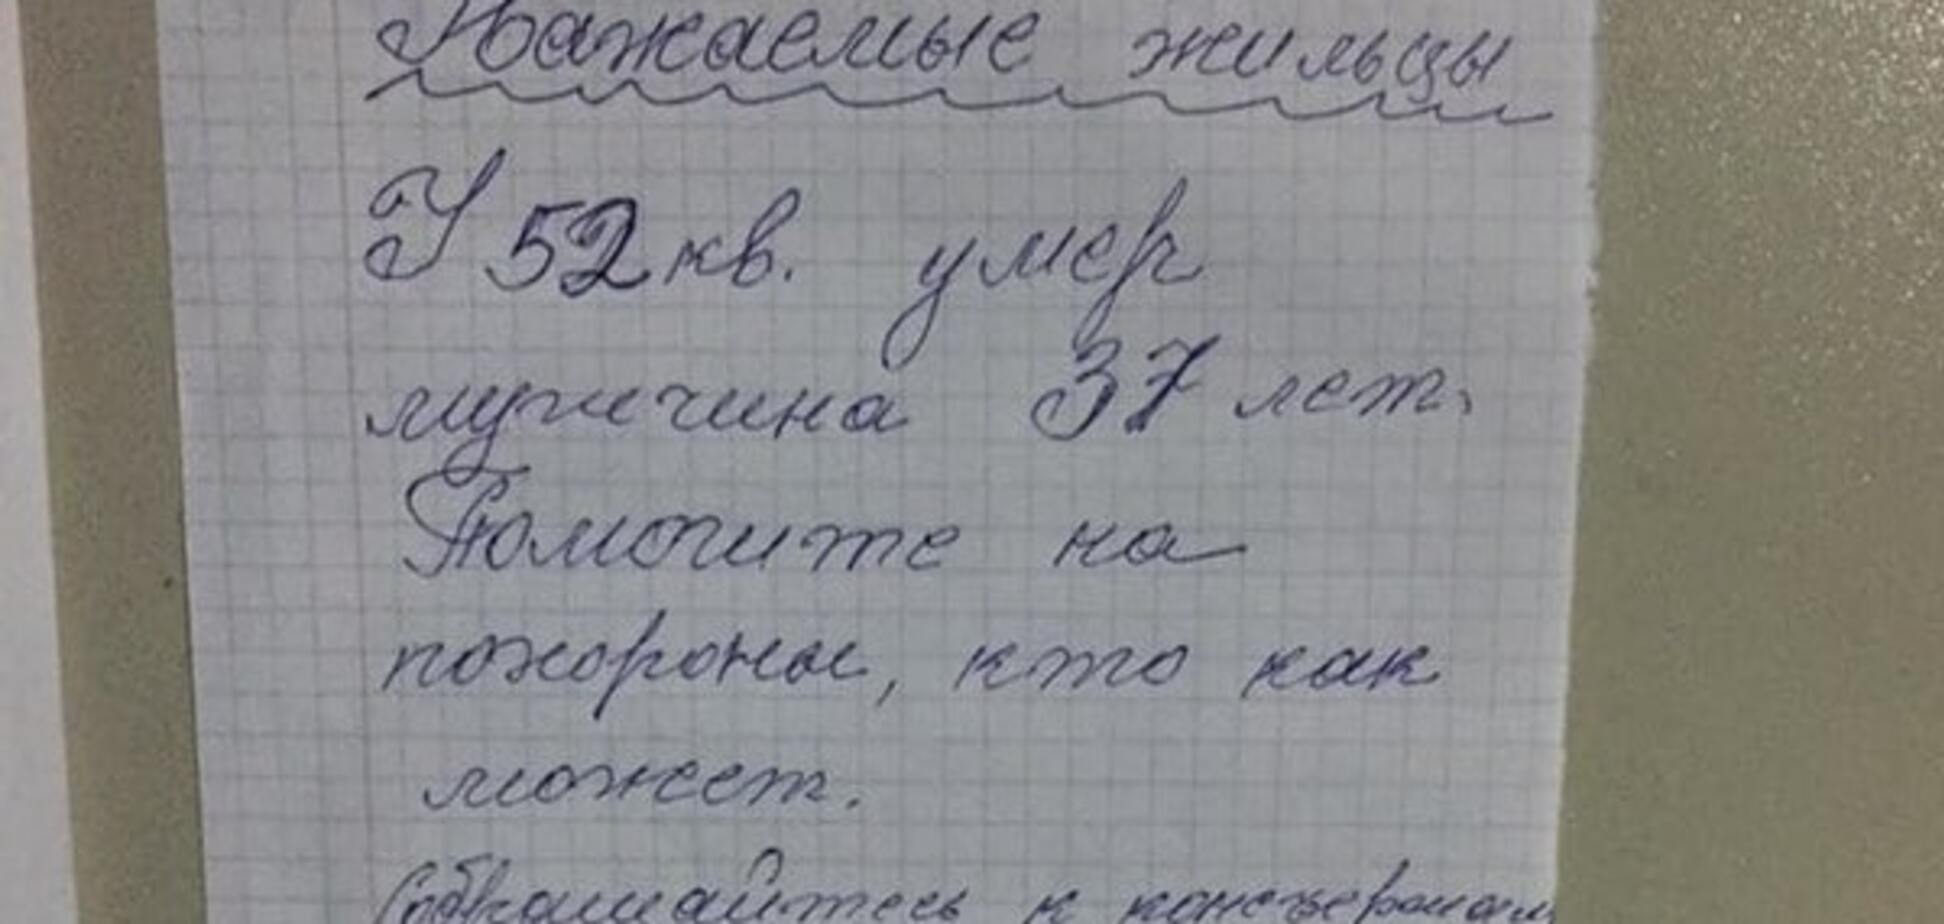 Уважаемые жильцы
У 52 кв. умер
мужчина 37 лет.
Помогите на
похороны, кто как
может.
Обращайтесь к консьержам